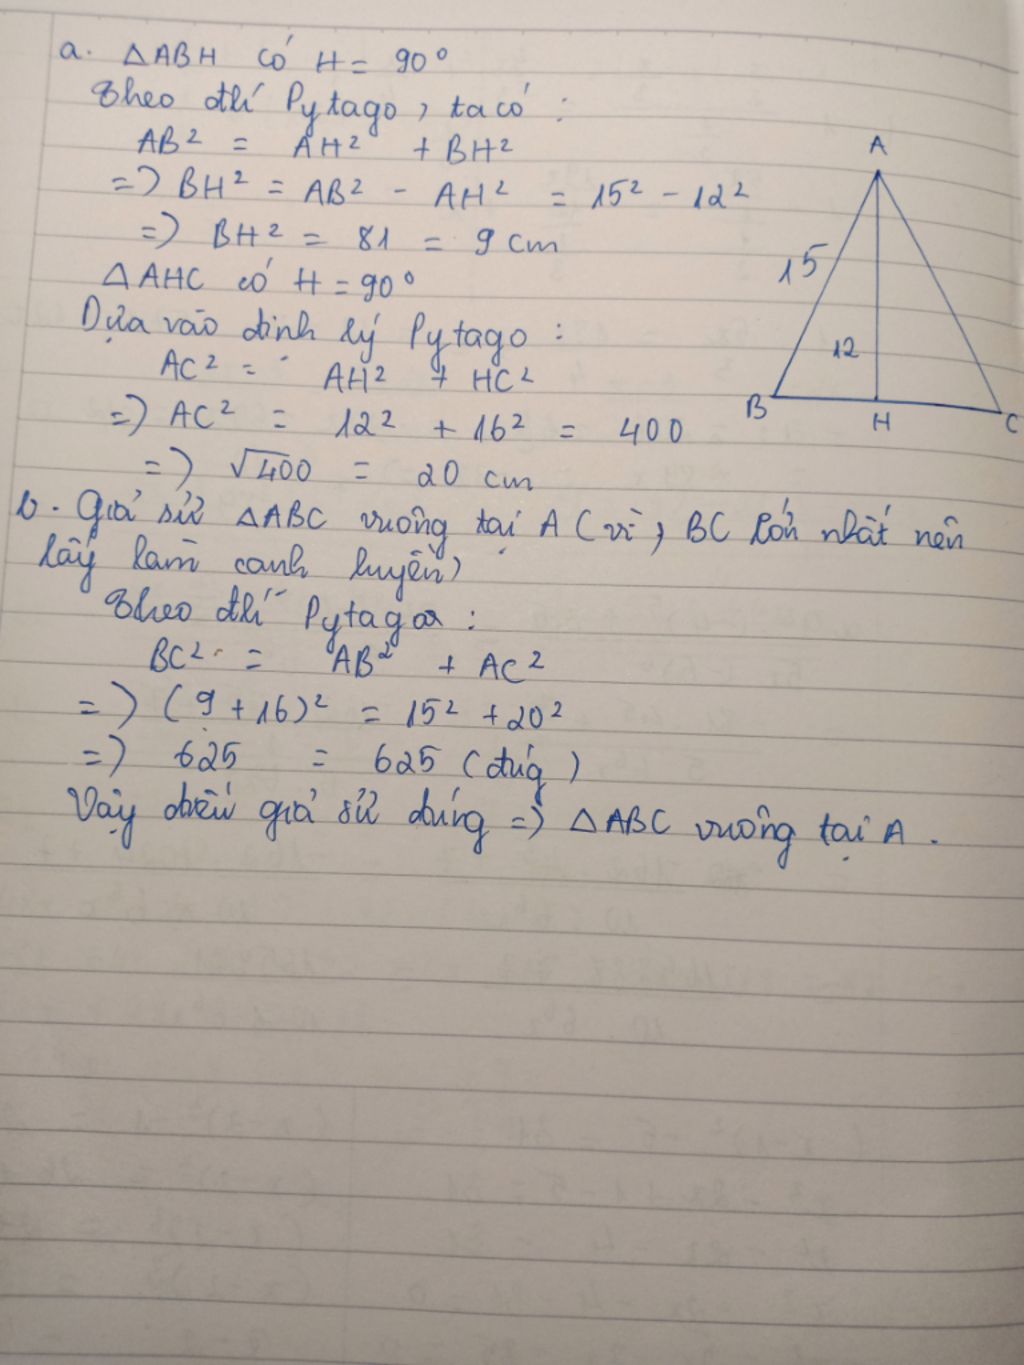 a. △ABH có H = 90°
Theo đlí Pytago, ta có :
AB² = AH² + BH²
=> BH² = AB² - AH² = 15² - 12²
=> BH² = 81 = 9 cm
△AHC có H = 90°
Dựa vào định lý Pytago :
AC² = AH² + HC²
=> AC² = 12² + 16² = 400
=> √400 = 20 cm
b. Giả sử △ABC vuông tại A (vì, BC lớn nhất nên
lấy làm cạnh huyền)
Theo đlí Pytago :
BC² = AB² + AC²
=> (9 + 16)² = 15² + 20²
=> 625 = 625 (đúg)
Vậy điều giả sử đúng => △ABC vuông tại A.
A
15
12
B
H
C